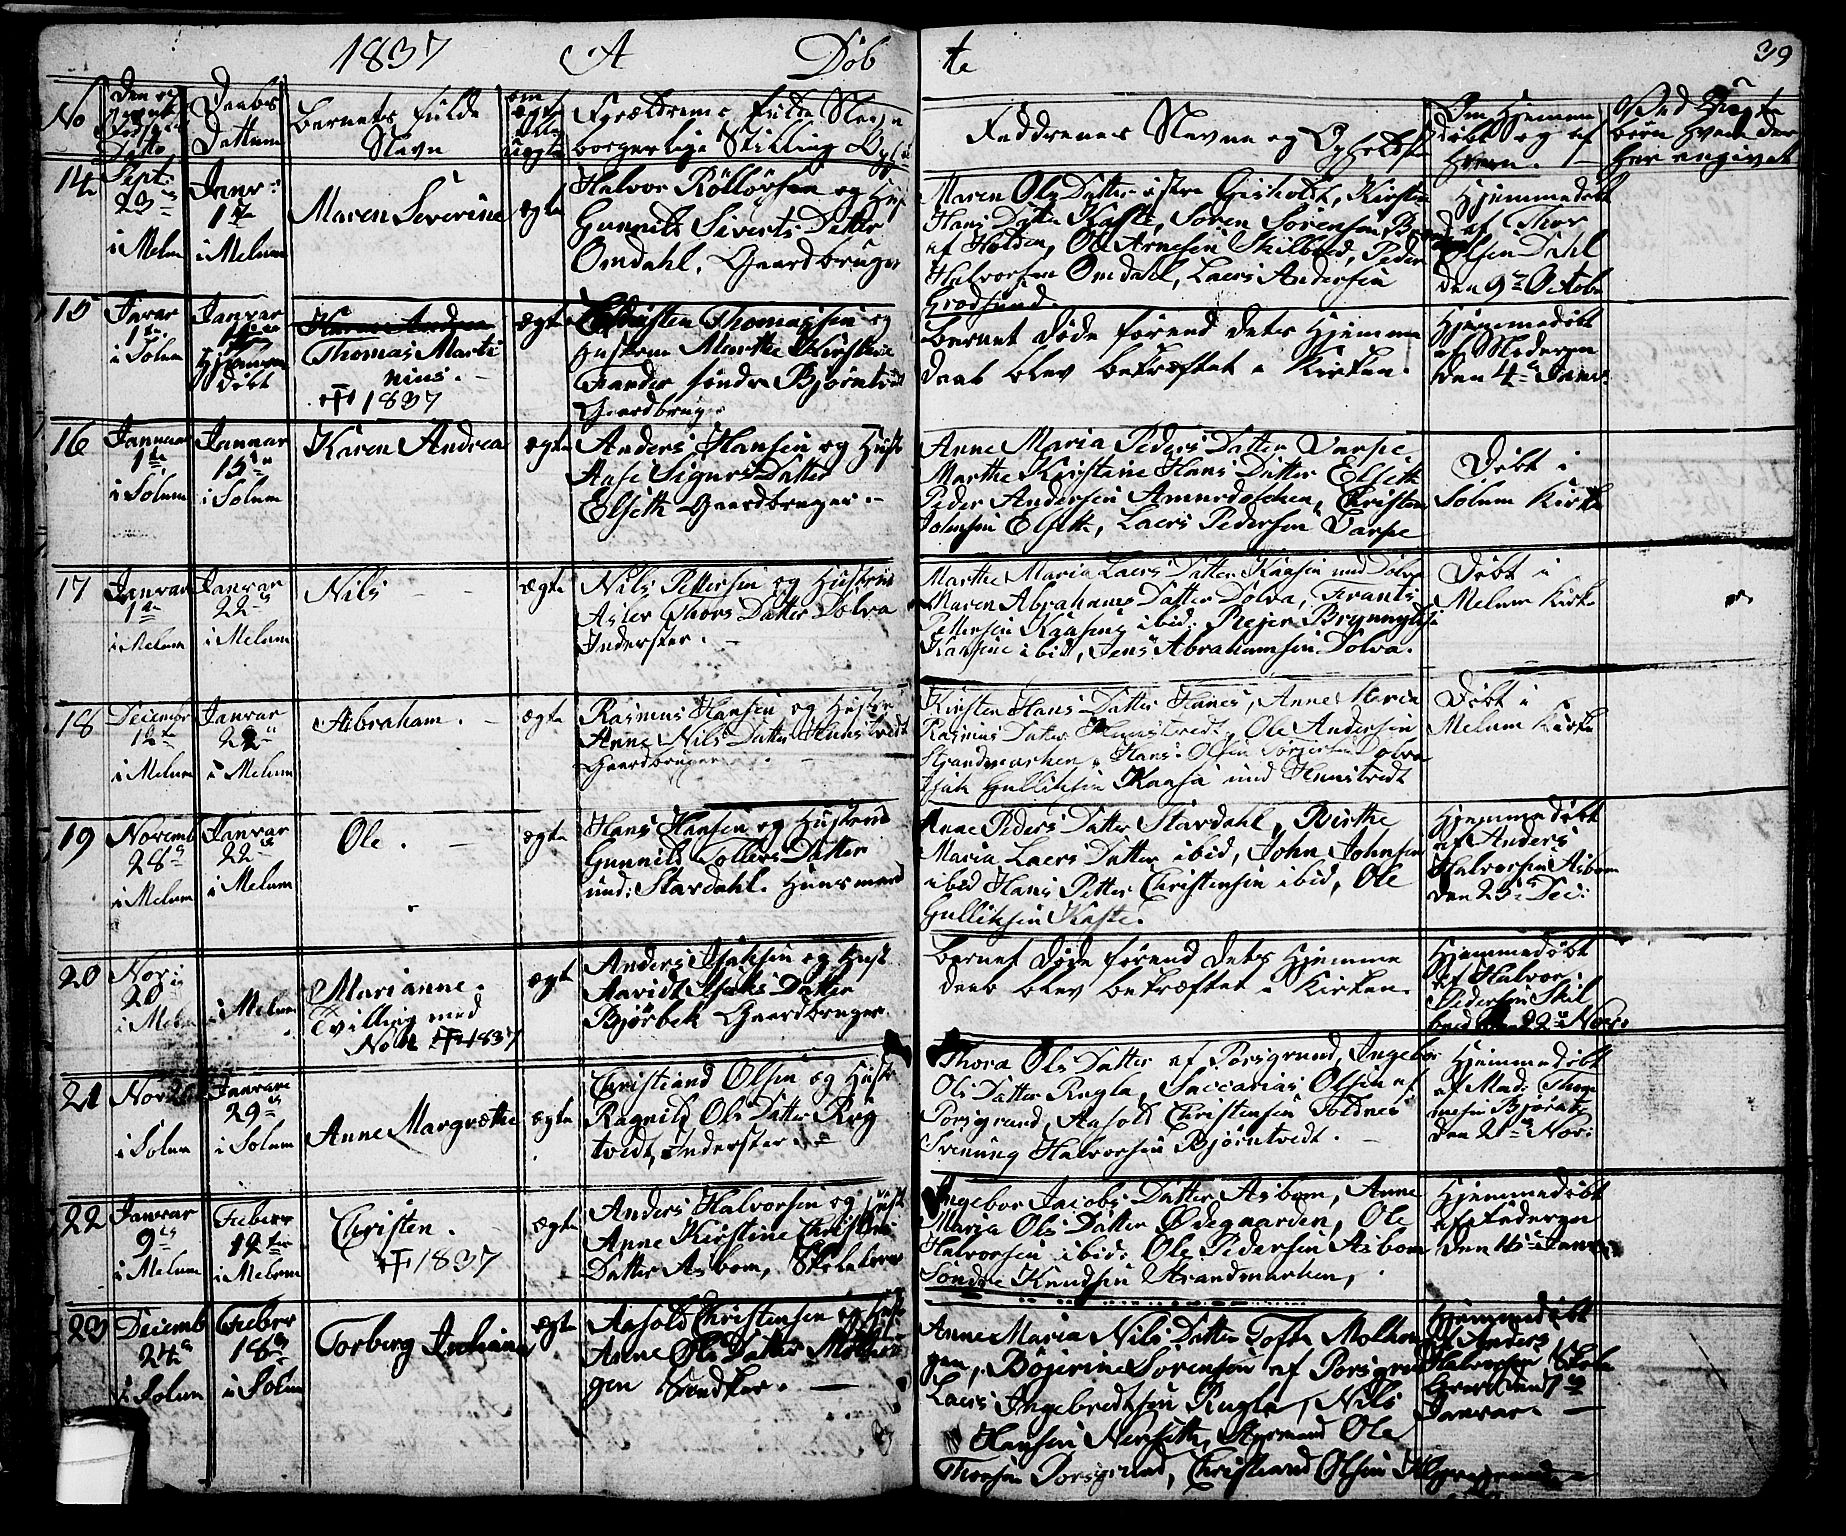 1837 A Døb
te 39
No
Daabs
Dattum
Barnets fulde
Navn
om
ægte
eller
uægte
Forældrenes fulde Navn
borgerlige Stilling
Faddrenes Navne og Opholdst
Om Hjemme
døbt og af
hvem.
Ved uægte
børn hvem der
her angivet
14
Sept:
23
i Melum
Janr:
1te
i Melum
Maren Severine
ægte
Halvor Rollefsen og Hust
Gunnild Siverts Datter
Omdahl, Gaardbruger
Maren Ols Datter østre Gisholdt, Kirsten
Hans Datter Kaste, Søren Sørensen
af Holden, Ole Arnesen Skilbred, Peder
Halvorsen Omdahl, Laers Andersen
Grodsund.
Hjemmedøbt
af Thor
Olsen Dahl
den 9de Octobr
15
Janvar
1te
i Solum
Janvar
Hjemme
døbt
Karen Andrea
Thomas Marti
nius.
1837
ægte
Christen Thomassen og
Hustrue Marthe Kirstine
Frander søndre Bjørntvedt
Gaardbruger
Barnet døde førend dets Hjemme
daab blev bekræftet i Kirken.
Hjemmedøbt
af Moderen
den 4de Janr:
16
Januar
1te
i Solum
Januar
15de
i Solum
Karen Andrea
ægte
Anders Hansen og Hust
Aase Sigurs Datter
Elseth Gaardbruger
Anne Maria Peders Datter Varpe
Marthe Kirstine Hans Datter Elseth
Peder Andersen, Christen
Johnsen Elseth, Laers Pedersen Varpe
Døbt i
Solum Kirke
17
Janvar
1te
i Melum
Janvar
22
i Melum
Nils
ægte
Nils Pettersen og Hustrue
Aslov Thors Datter Dolva
Inderster.
Marthe Maria Laers Datter Kaasen und Dolva
Maren Abrahams Datter Dolva, Frants
Pettersen Kaasene ibid: Rejer Brynnylds
Kaasene ibid, Jens Abrahamsen Dolva.
Døbt i
Melum Kirke
18
Decembr
12te
i Melum
Janvar
22
i Melum
Abraham.
ægte
Rasmus Hansen og Hustrue
Anne Nils Datter Hunstvedt
Gaardbruger
Kirsten Hans Datter Hanes, Anne Maria
Rasmus Datter Hunstvedt, Ole Andersen
Strandmarken, Hans Olsen Dolva
Isak Gulliksen Kaasa und Hunstvedt
Døbt i
Melum Kirke
19
Novemb
28
i Melum
Janvar
22
i Melum
Ole.
ægte
Hans Hansen og Hustrue
Gunnild Tollefs Datter
und: Stavdahl. Huusmand
Anne Peders Datter Stavdahl, Birthe
Maria Laers Datter ibid, John Johnsen
ibid Hans Petter Christensen ibid, Ole
Gulliksen Kaste.
Hjemmedøbt
af Anders
Halvorsen Aasbom
den 25de Dec:
20
Nov:
20
i Melum
i Melum
Marianne.
Tvilling med
No 1837
ægte
Anders Isaksen og Hust
Aavidt Isaks Datter
Bjørbek Gaardbruger
Barnet døde førend dets Hjemme
daab blev bekræftet i Kirken.
Hjemmedøbt
af Halvor
Pedersen Skil
bred den 22de Nov:
21
Nov
i Solum
Januari
29
i Solum
Anne Margrethe
ægte
Christiand Olsen og Hust
Ragnild Ols Datter Rog
tvedt, Inderster
Thora Ols Datter af Porsgrund, Ingebor
Ols Datter Rugla, Saccarias Olsen af
Porsgrund, Aasold Christensen Foldnes
Svenung Halvorsen Bjørntvedt.
Hjemmedøbt
af Mad: Thom
mesen Bjørntv
den 21de Nov:
22
Janvar
9
i Melum
Feberr
12te
i Melum
Christen.
1837
ægte
Anders Halvorsen og Hust
Anne Kirstine Christens
Datter Asbom, Skolelærer
Ingebor Jacobs Datter Asbom, Anne
Maria Ols Datter Ødegaarden, Ole
Halvorsen ibid: Ole Pedersen Asbom
Søndre Knudsen Strandmarken,
Hjemmedøbt
af Faderen
den 15 Janv
23
Decemb
24
i Solum
Feber
18
i Solum
Torberg Juliane
ægte
Aasold Christensen og Hust
Anne Ols Datter Molhou
gen Snedker.
Anne Maria Nils Datter Toft Molhou
gen, Bøjerine Sørensen af Porsgrund
Laers Ingebredtsen Rugla, Nils
Hansen Nenseth, Styrmand Ole
Thorsen Porsgrund, Christiand Olsen
Hjemmedøbt
af Anders
Halvorsen Skole
Janvar.